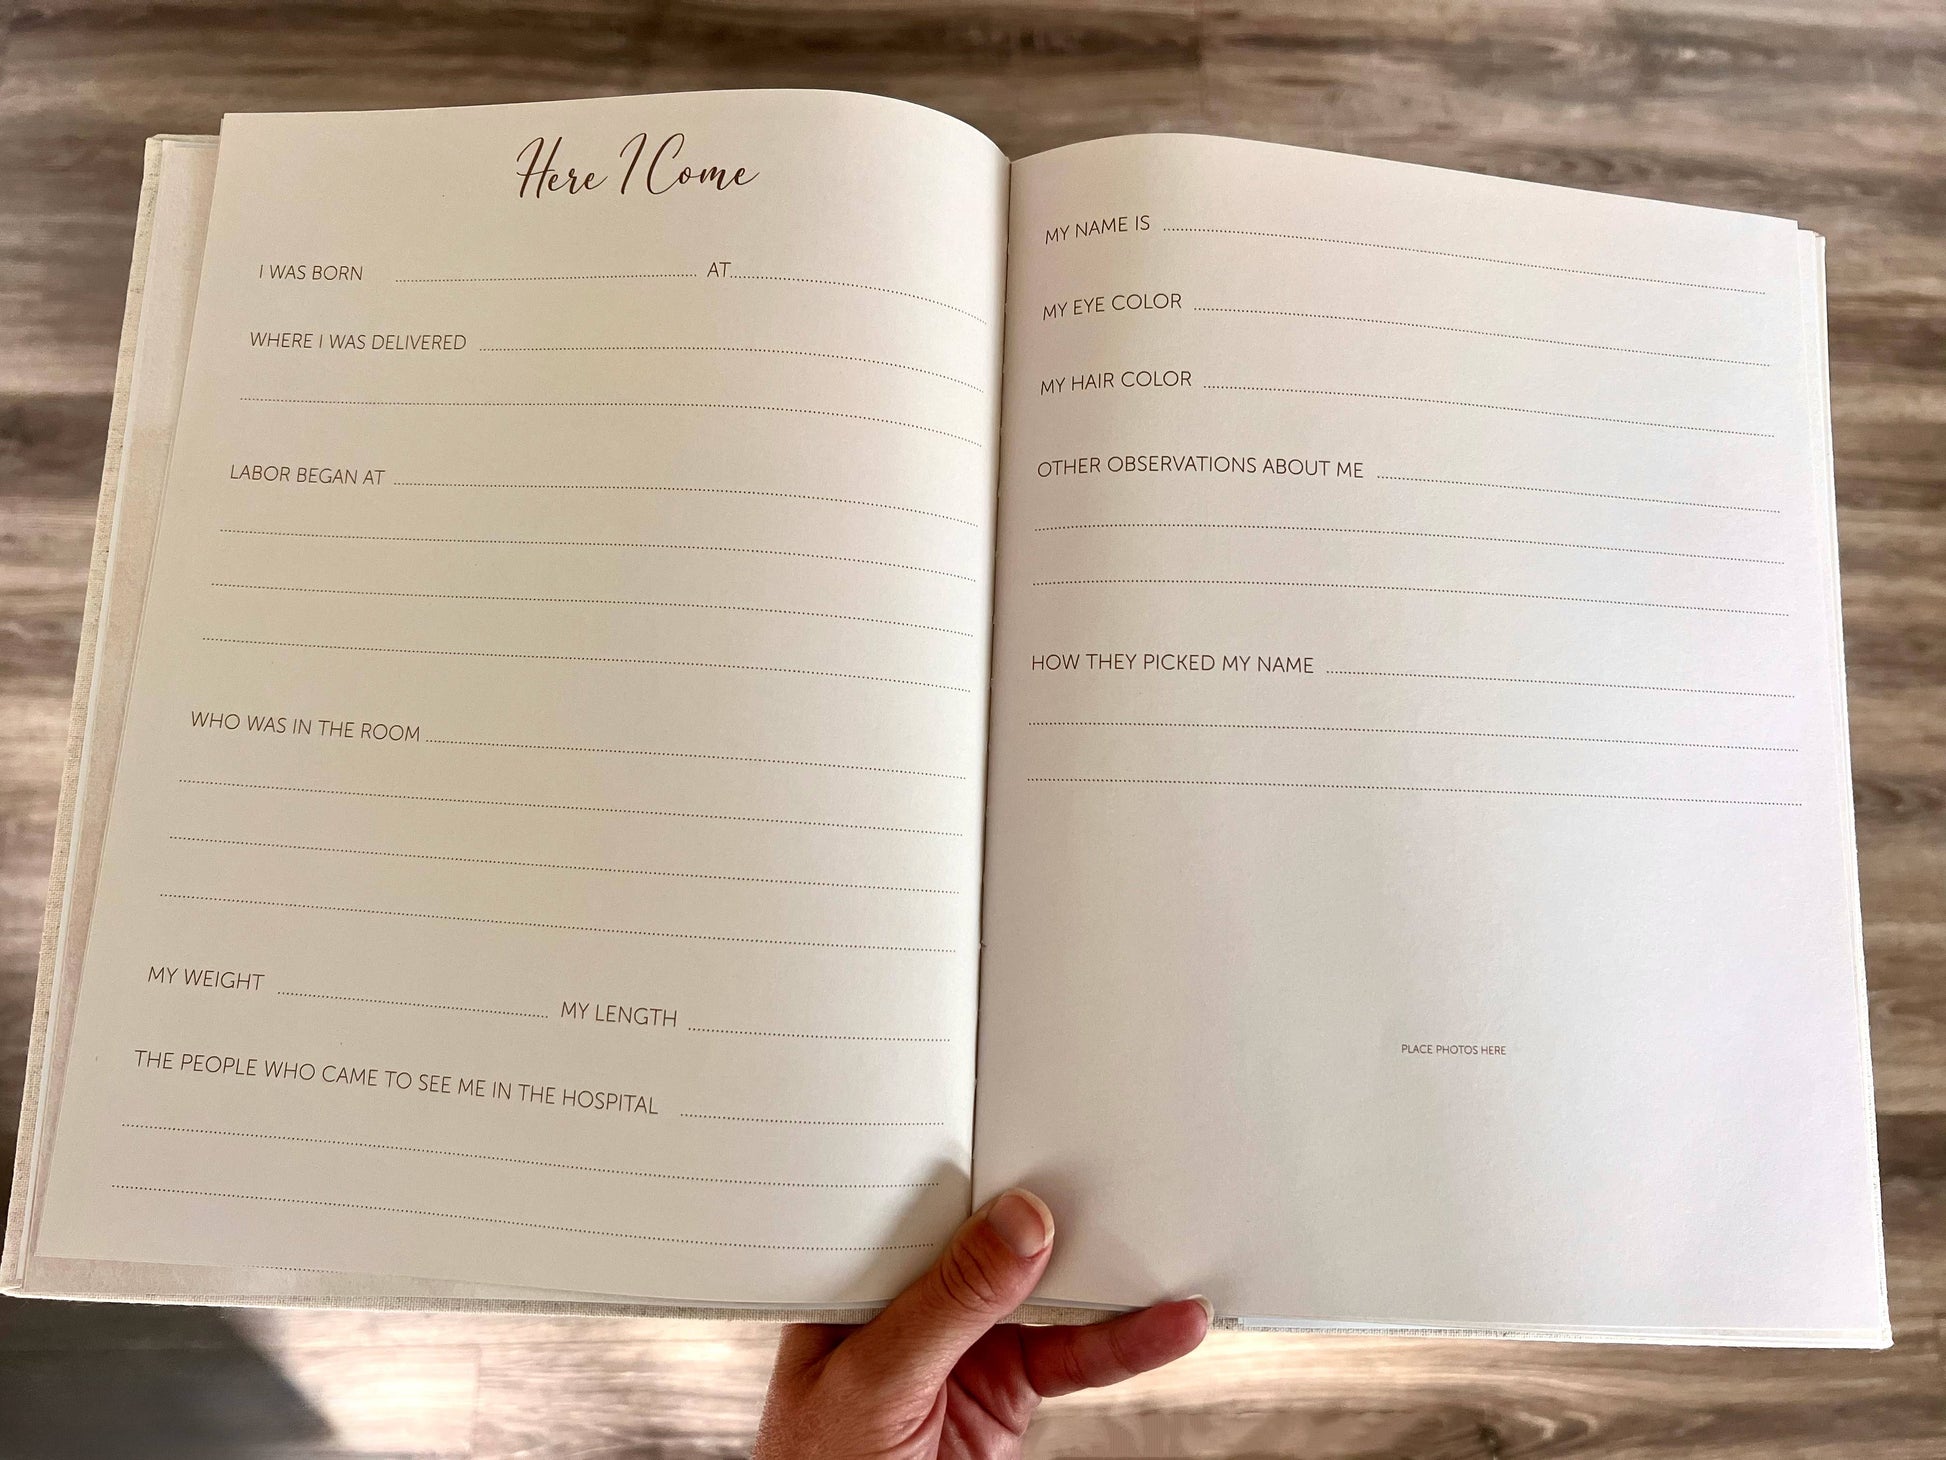 Here I Come
I WAS BORN AT
WHERE I WAS DELIVERED
LABOR BEGAN AT
WHO WAS IN THE ROOM
MY WEIGHT MY LENGTH
THE PEOPLE WHO CAME TO SEE ME IN THE HOSPITAL
MY NAME IS
MY EYE COLOR
MY HAIR COLOR
OTHER OBSERVATIONS ABOUT ME
HOW THEY PICKED MY NAME
PLACE PHOTOS HERE